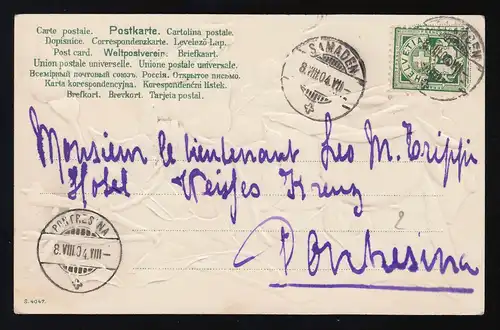 Carte postale. Postkarte. Cartolina postale.
Dopisnice. Correspondenzkarte. Levelező Lap.
Post card. Weltpostverein. Briefkaart.
Union postale universelle. Unione postale universale.
Всемірный почтовый союзъ. Россія. Открытое письмо.
Karta korespondencyjna. Korespondenční lístek.
Brefkort. Brevkort. Tarjeta postal.
SAMADEN
8.VIII.04.VII-
HELVETIA
Monsieur le lieutenant Leo M. Trippi
Hotel Weisses Kreuz
2
Pontresina
PONTRESINA
8.VIII.04.VIII-
S. 4047.